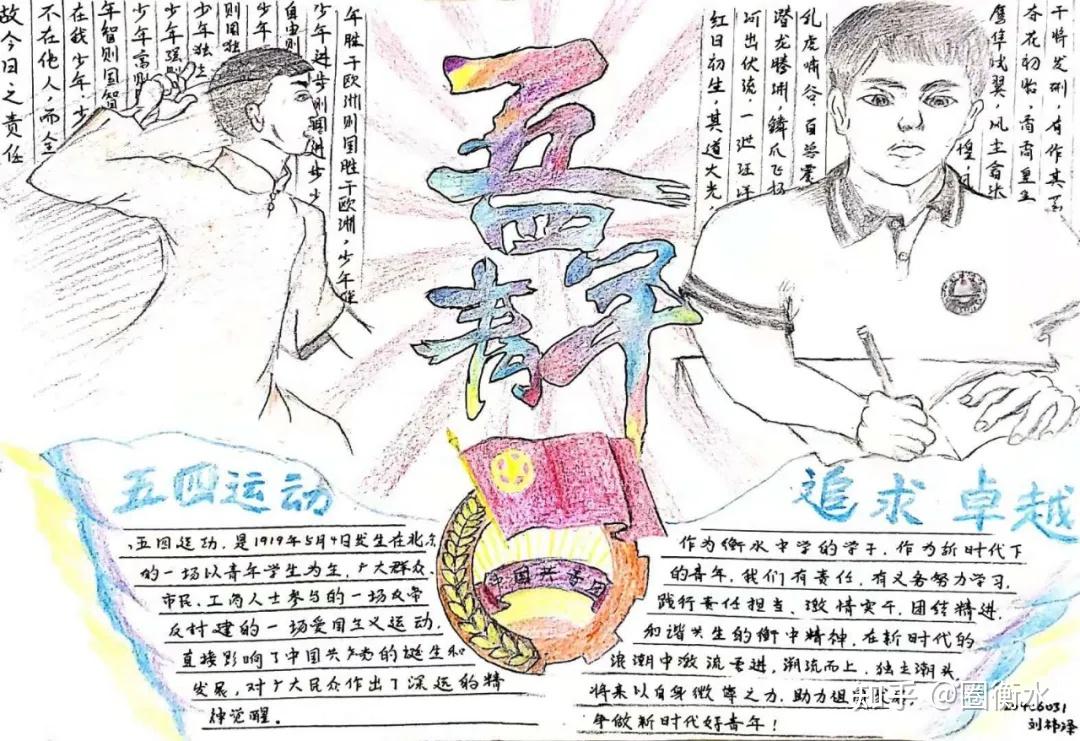 故今日之责任
不在他人，而全
在我少年，少
年智则国智
少年富则
少年强
少年独立
则国独
少年
自由则
少年进步则国进步 少
年胜于欧洲则国胜于欧洲，少年雄
五四
青年
红日初生，其道大光，
河出伏流，一泄汪洋
潜龙腾渊，鳞爪飞扬
乳虎啸谷，百兽震
惶，
鹰隼试翼，风尘翕张
奇花初胎，矞矞皇皇
干将发硎，有作其芒
五四运动
五四运动，是1919年5月4日发生在北京
的一场以青年学生为主，广大群众、
市民、工商人士参与的一场反帝
反封建的一场爱国主义运动，
直接影响了中国共产党的诞生和
发展，对广大民众作出了深远的精
神觉醒。
中国共青团
追求卓越
作为衡水中学的学子，作为新时代下
的青年，我们有责任，有义务努力学习，
践行责任担当、激情实干，团结精进
和谐共生的衡中精神，在新时代的
浪潮中激流勇进，溯流而上，独立潮头
将来以自身微薄之力，助力祖
争做新时代好青年！
6031
刘祎泽
知乎 @圈衡水